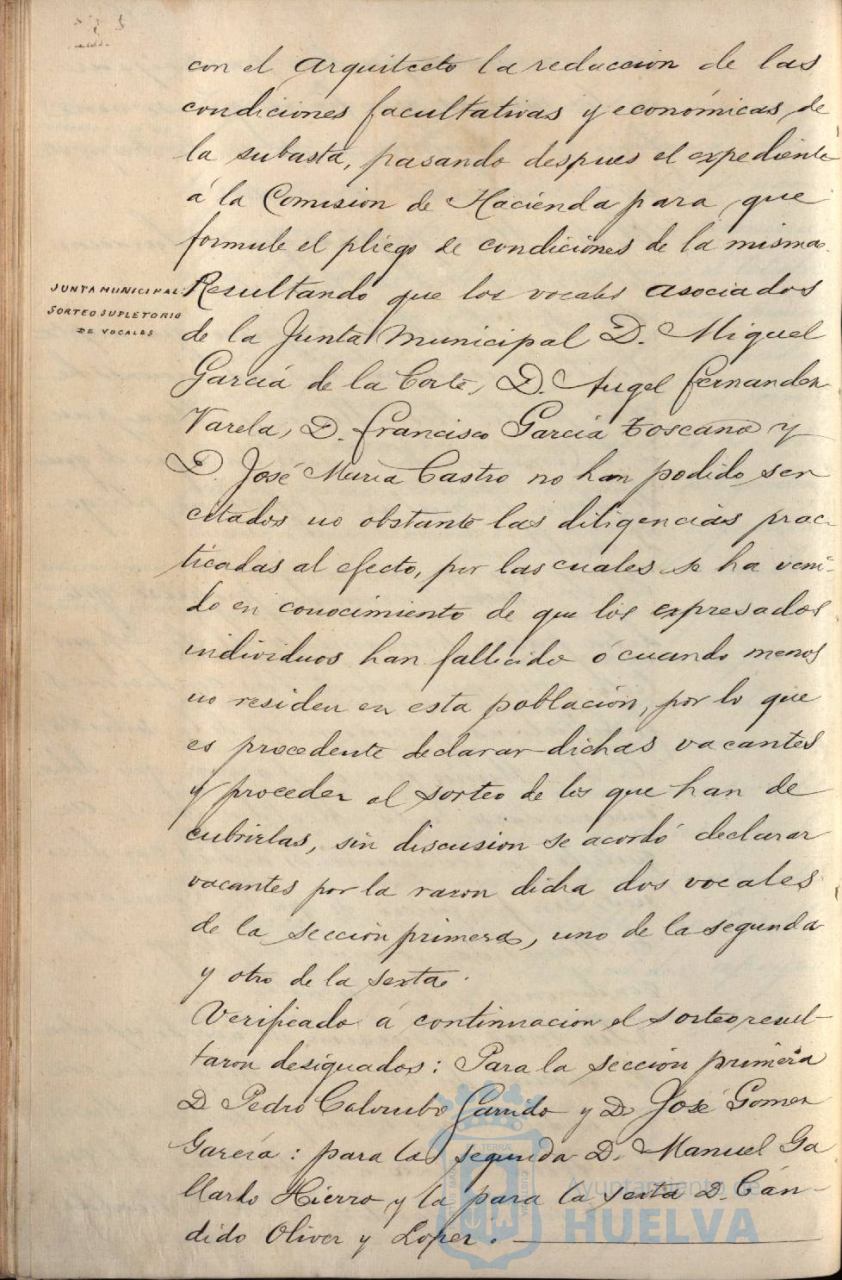 con el Arquitecto la redaccion de las
condiciones facultativas y económicas de
la subasta, pasando despues el expediente
á la Comision de Hacienda para que
formule el pliego de condiciones de la misma.
JUNTA MUNICIPAL:
SORTEO SUPLETORIO
DE VOCALES
Resultando que los vocales asociados
de la Junta Municipal D. Miguel
García de la Corte, D. Angel Fernandez
Varela, D. Francisco García Toscano y
D. José María Castro no han podido ser
citados no obstante las diligencias prac-
ticadas al efecto, por las cuales se ha veni-
do en conocimiento de que los expresados
individuos han fallecido ó cuando menos
no residen en esta población, por lo que
es procedente declarar dichas vacantes
y proceder al sorteo de los que han de
cubrirlas, sin discusion se acordó declarar
vacantes por la razon dicha dos vocales
de la sección primera, uno de la segunda
y otro de la sexta.
Verificado á continuacion el sorteo resul-
taron designados: Para la sección primera
D. Pedro Colombo Garrido y D. José Gomez
García: para la segunda D. Manuel Ga
llardo Hierro y la para la sexta D. Cán-
dido Oliver y Lopez.
Ayuntamiento de
HUELVA